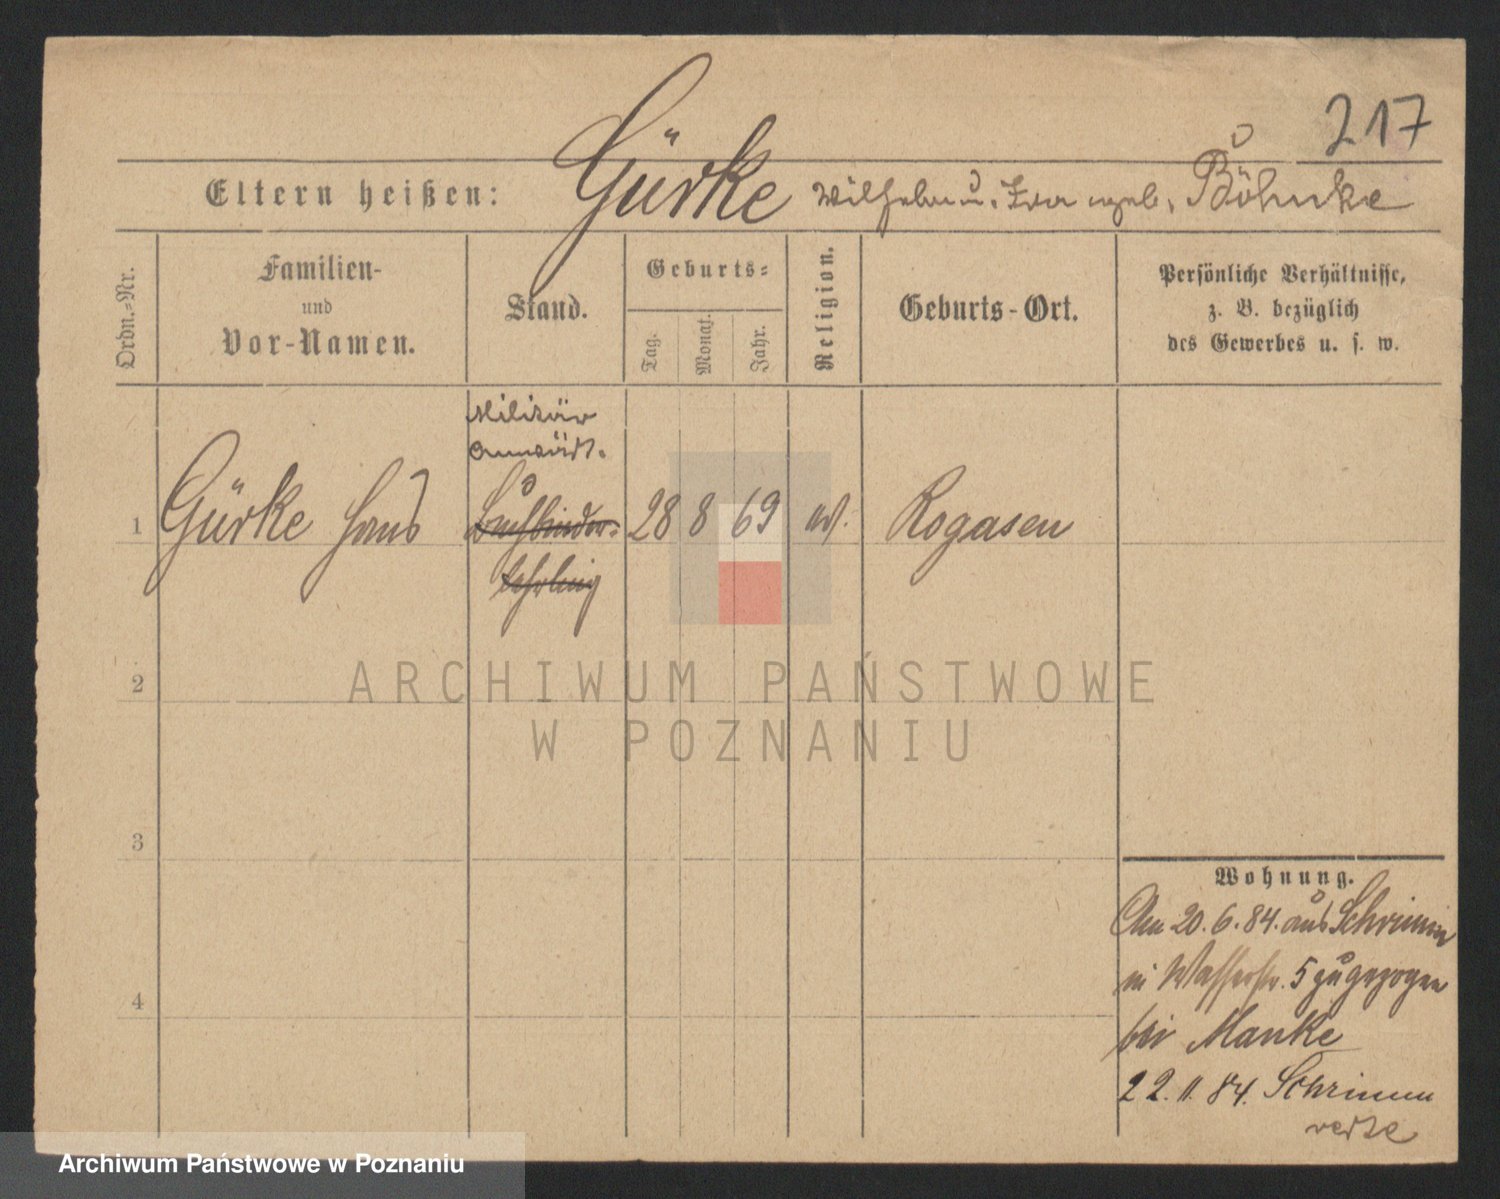 217
Gürke
Eltern heißen: Wilhelm u. Ida geb. Böhnke
Ordn.-Nr.
Familien-
und
Vor-Namen.
Stand.
Geburts-
Tag.
Monat.
Jahr.
Religion.
Geburts-Ort.
Persönliche Verhältnisse,
z. B. bezüglich
des Gewerbes u. s. w.
Militär
Anwärt.
1 Gürke Hans Buchbinder- 28 8 69 ev. Rogasen
lehrling
2
3
4
Wohnung.
Am 20. 6. 84. aus Schrimm
in Wasserstr. 5 zugezogen
bei Manke
22. 11. 84. Schrimm
ARCHIWUM PAŃSTWOWE
W POZNANIU
Archiwum Państwowe w Poznaniu